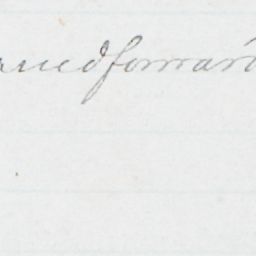 arried forward